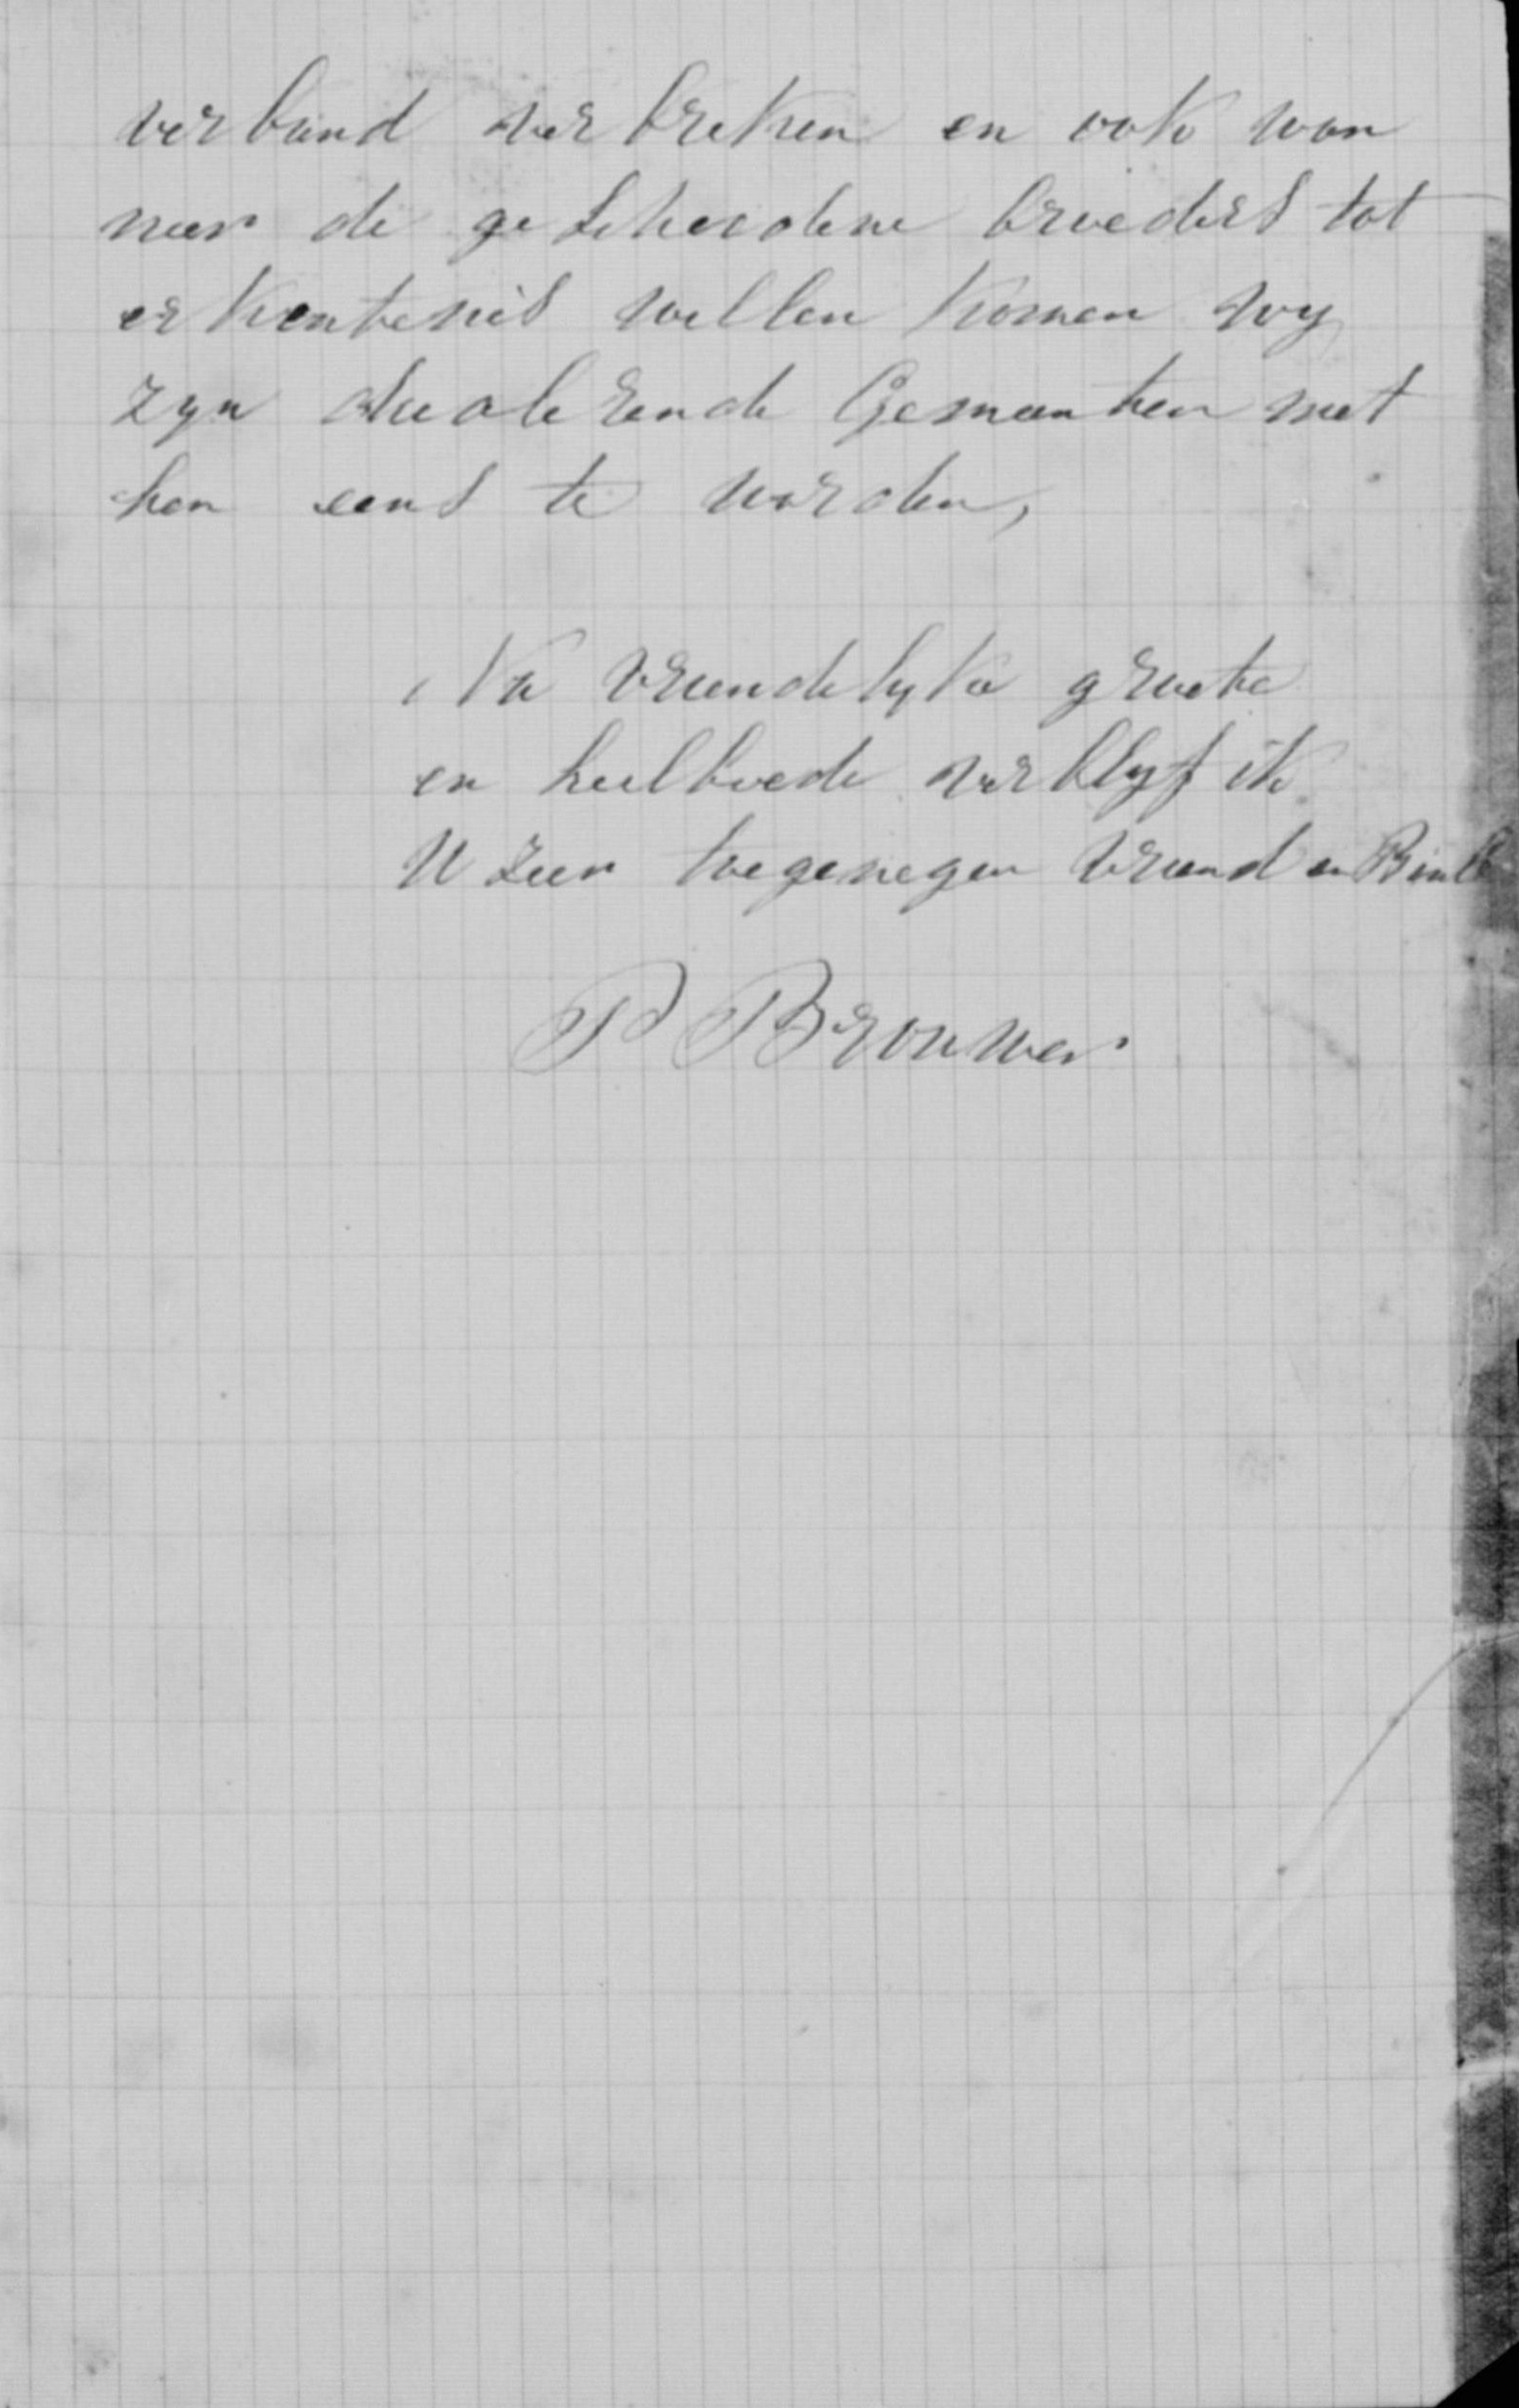 verband verbreken en ook wan
neer de gescheidene broeders tot
erkentenis willen komen wy
zyn doleerende Gemeenten met
hen eens te worden,
Na vriendelyke groete
en heilbede verblyf ik
U zeer toegenegen vriend en
P Brouwer